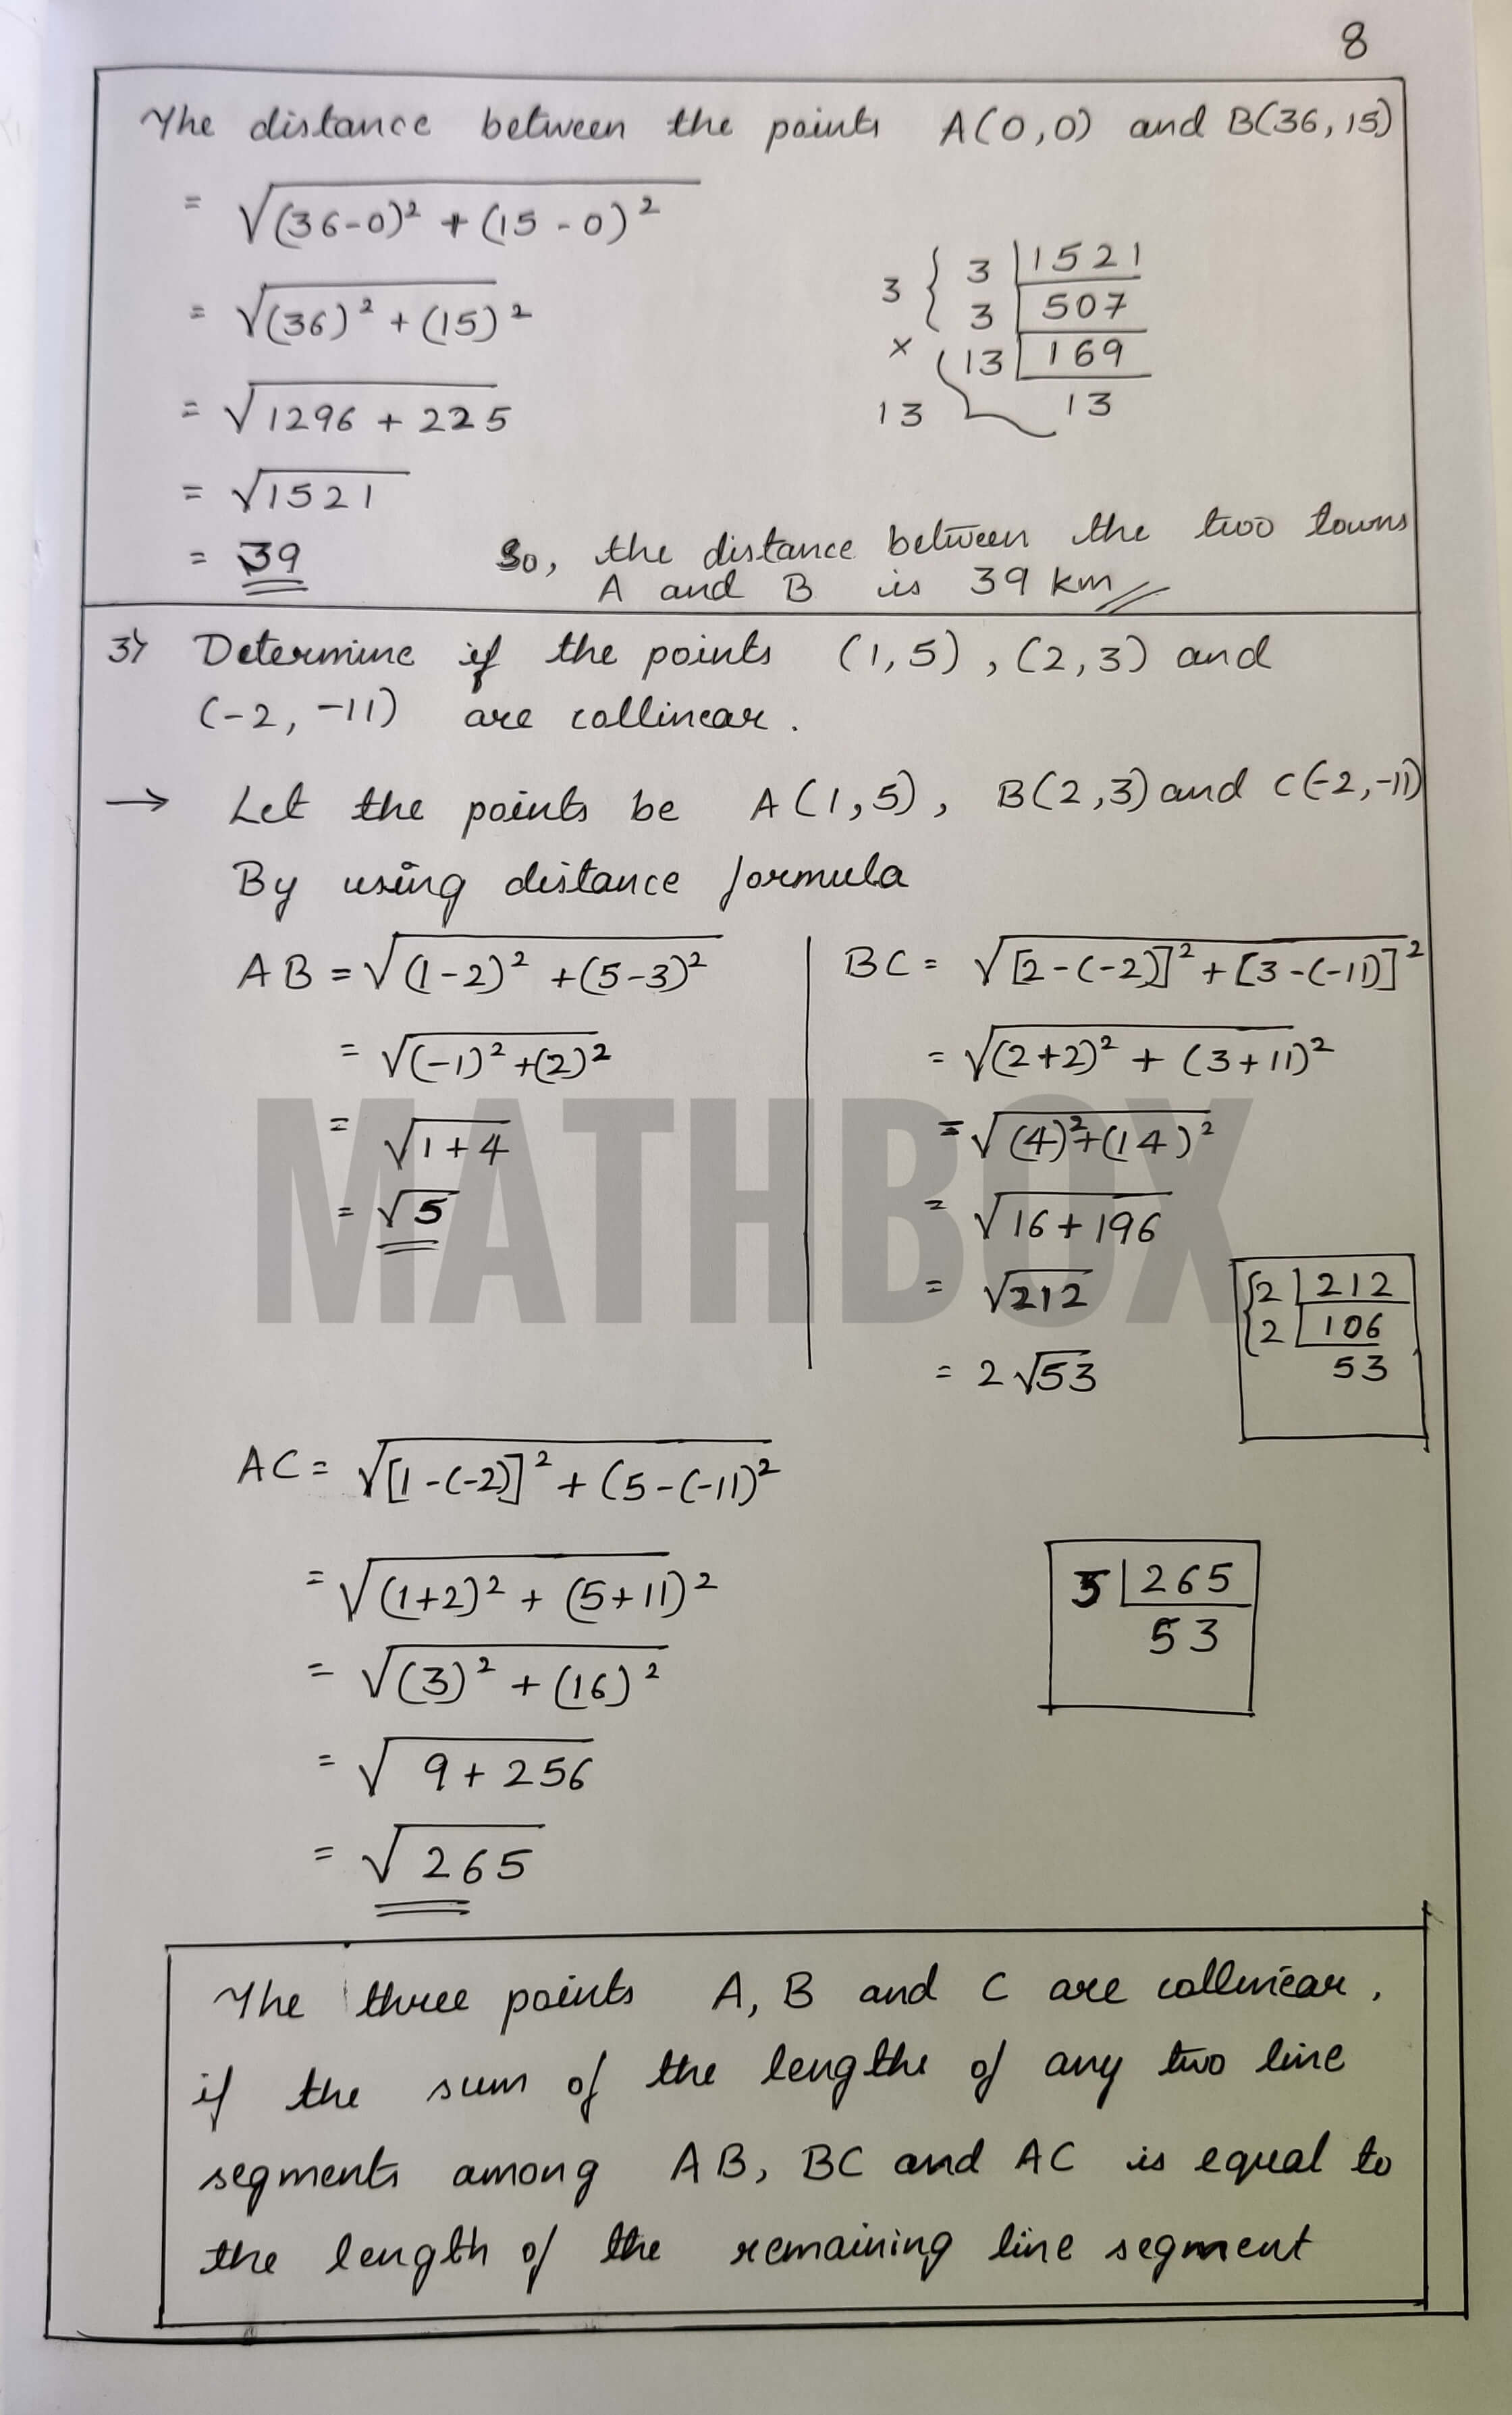 8
The distance between the points A(0,0) and B(36,15)
= √(36-0)² + (15-0)²
= √(36)² + (15)²
= √1296 + 225
= √1521
= 39
3 { 3 | 1521
3 | 507
× 13 | 169
13 13
So, the distance between the two towns
A and B is 39 km
3) Determine if the points (1,5), (2,3) and
(-2, -11) are collinear.
→ Let the points be A(1,5), B(2,3) and C(-2,-11)
By using distance formula
AB = √(1-2)² + (5-3)²
= √(-1)² + (2)²
= √1+4
= √5
BC = √[2-(-2)]² + [3-(-11)]²
= √(2+2)² + (3+11)²
= √(4)² + (14)²
= √16 + 196
= √212
= 2√53
2 | 212
2 | 106
53
MATHBOX
AC = √[1-(-2)]² + (5-(-11)²
= √(1+2)² + (5+11)²
= √(3)² + (16)²
= √9 + 256
= √265
5 | 265
53
The three points A, B and C are collinear,
if the sum of the lengths of any two line
segments among AB, BC and AC is equal to
the length of the remaining line segment